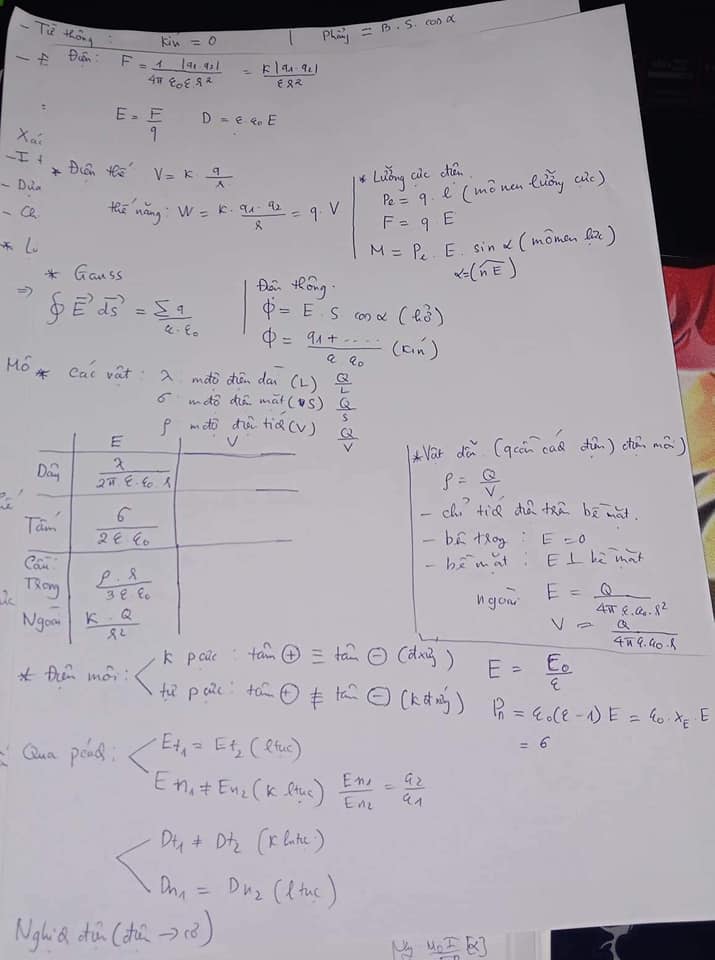 - Từ thông: kín = 0 | phẳng = B.S.cosα
- F Điện: F = 1/4π |q1.q2|/ε0εr² = k|q1.q2|/εr²
: E = F/q D = ε ε0 E
Xác
- I +
* Điện thế V = k. q/r
- Dựa
- Ch
thế năng: W = k. q1.q2/r = q.V
* Lư
* Lưỡng cực điện
Pe = q.l (mômen lưỡng cực)
F = q E
M = Pe. E. sinα (mômen lực)
α = (n E)
* Gauss
⇒ ∮ E⃗ ds⃗ = Σq/ε.ε0
Điện thông.
ϕ = E.S cosα (hở)
ϕ = q1+..../ε ε0 (kín)
Mô
* Các vật: λ mđộ điện dài (L) Q/L
σ mđộ điện mặt (S) Q/S
ρ mđộ điện tích (V) Q/V
E V
Dây λ/2π.ε.ε0.r
Tấm σ/2ε ε0
Cầu:
Trong ρ.r/3ε ε0
Ngoài k.Q/r²
* Vật dẫn (qcân điện)
ρ = Q/V
- chỉ tích điện trên bề mặt.
- bên trong: E = 0
- bề mặt: E ⊥ bề mặt
ngoài E = Q/4π ε.ε0.r²
V = Q/4π ε.ε0.r
* Điện môi: k pcực: tâm ⊕ ≡ tâm ⊖ (đxứng)
tự pcực: tâm ⊕ ≢ tâm ⊖ (k đxứng)
E = E0/ε
Pn = ε0(ε-1) E = ε0.χE.E
= σ
Qua pcách: Et1 = Et2 (ltục)
En1 ≠ En2 (k ltục) En1/En2 = ε2/ε1
Dt1 ≠ Dt2 (k ltục)
Dn1 = Dn2 (ltục)
Nghịch điện (điện → cơ)